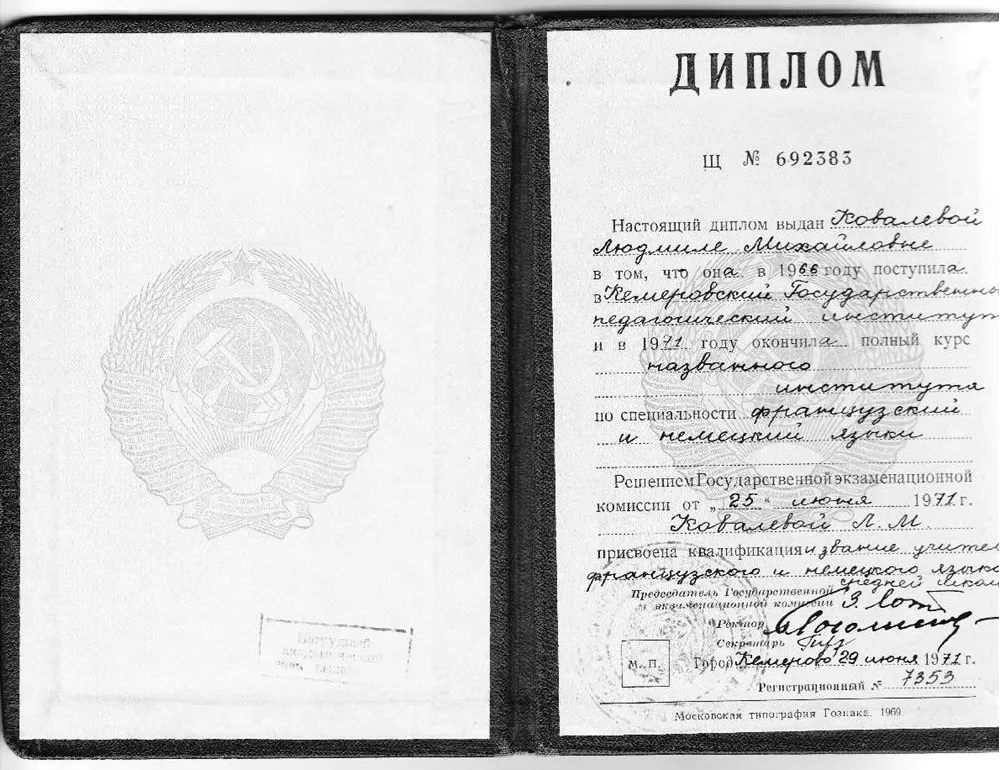 ДИПЛОМ
Щ № 692383
Настоящий диплом выдан Ковалевой
Людмиле Михайловне
в том, что она в 1966 году поступила
в Кемеровский Государственный
педагогический институт
и в 1971 году окончила полный курс
названного
института
по специальности французский
и немецкий языки
Решением Государственной экзаменационной
комиссии от „25" июня 1971 г.
Ковалевой Л. М.
присвоена квалификация и звание учителя
французского и немецкого языков
средней школы
Председатель Государственной
экзаменационной комиссии
Ректор
Секретарь
М. П.
Город Кемерово 29 июня 1971 г.
Регистрационный № 7353
Московская типография Гознака. 1969